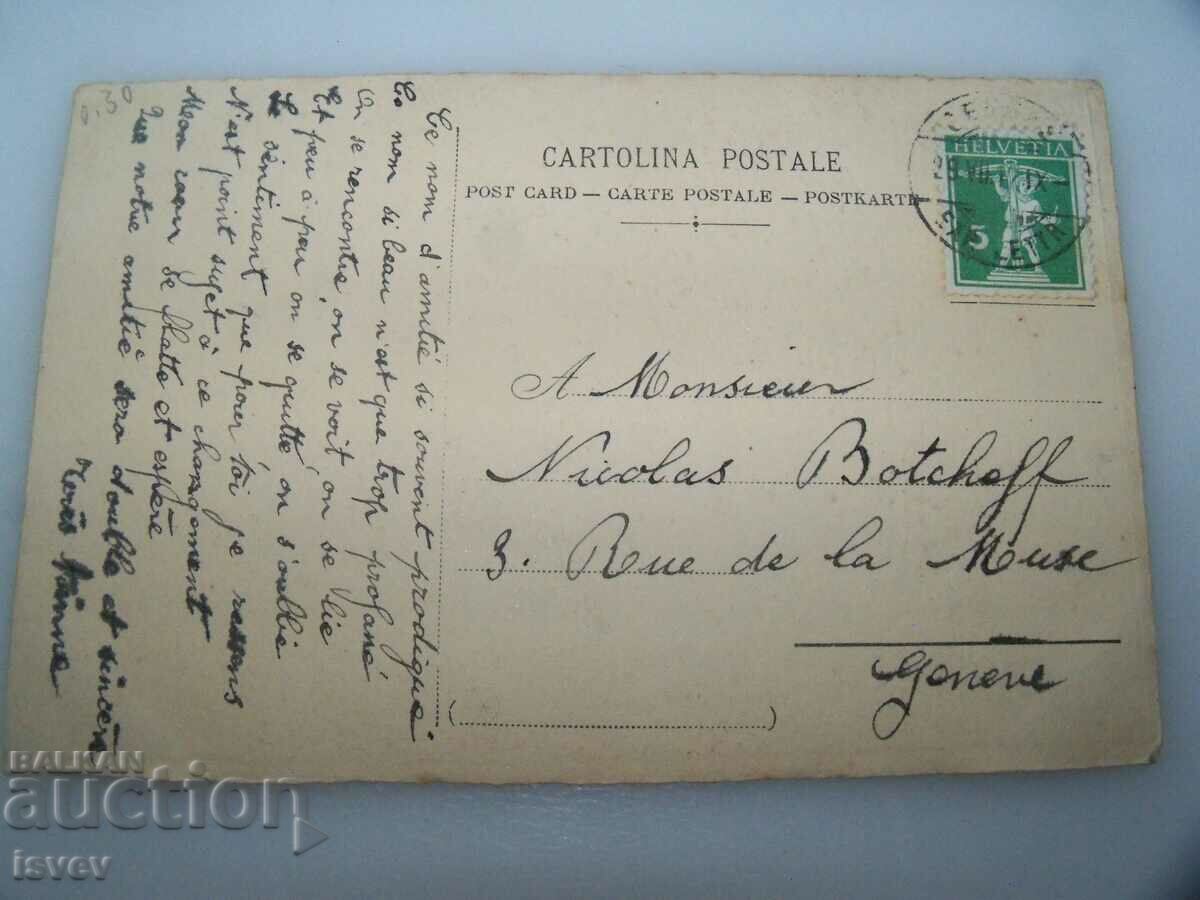 CARTOLINA POSTALE
POST CARD — CARTE POSTALE — POSTKARTE
HELVETIA
5
Ce nom d'amitié si souvent prodigué
Ce nom si beau n'est que trop profané
On se rencontre, on se voit, on se lie
Et peu à peu on se quitte on s'oublie
Le sentiment que pour toi je ressens
N'est point sujet à ce changement
Mon cœur se flatte et espère
Que notre amitié sera double et sincère
A Monsieur
Nicolas Botcheff
3. Rue de la Muse
Geneve
0.30
BALKAN
auction
isvev